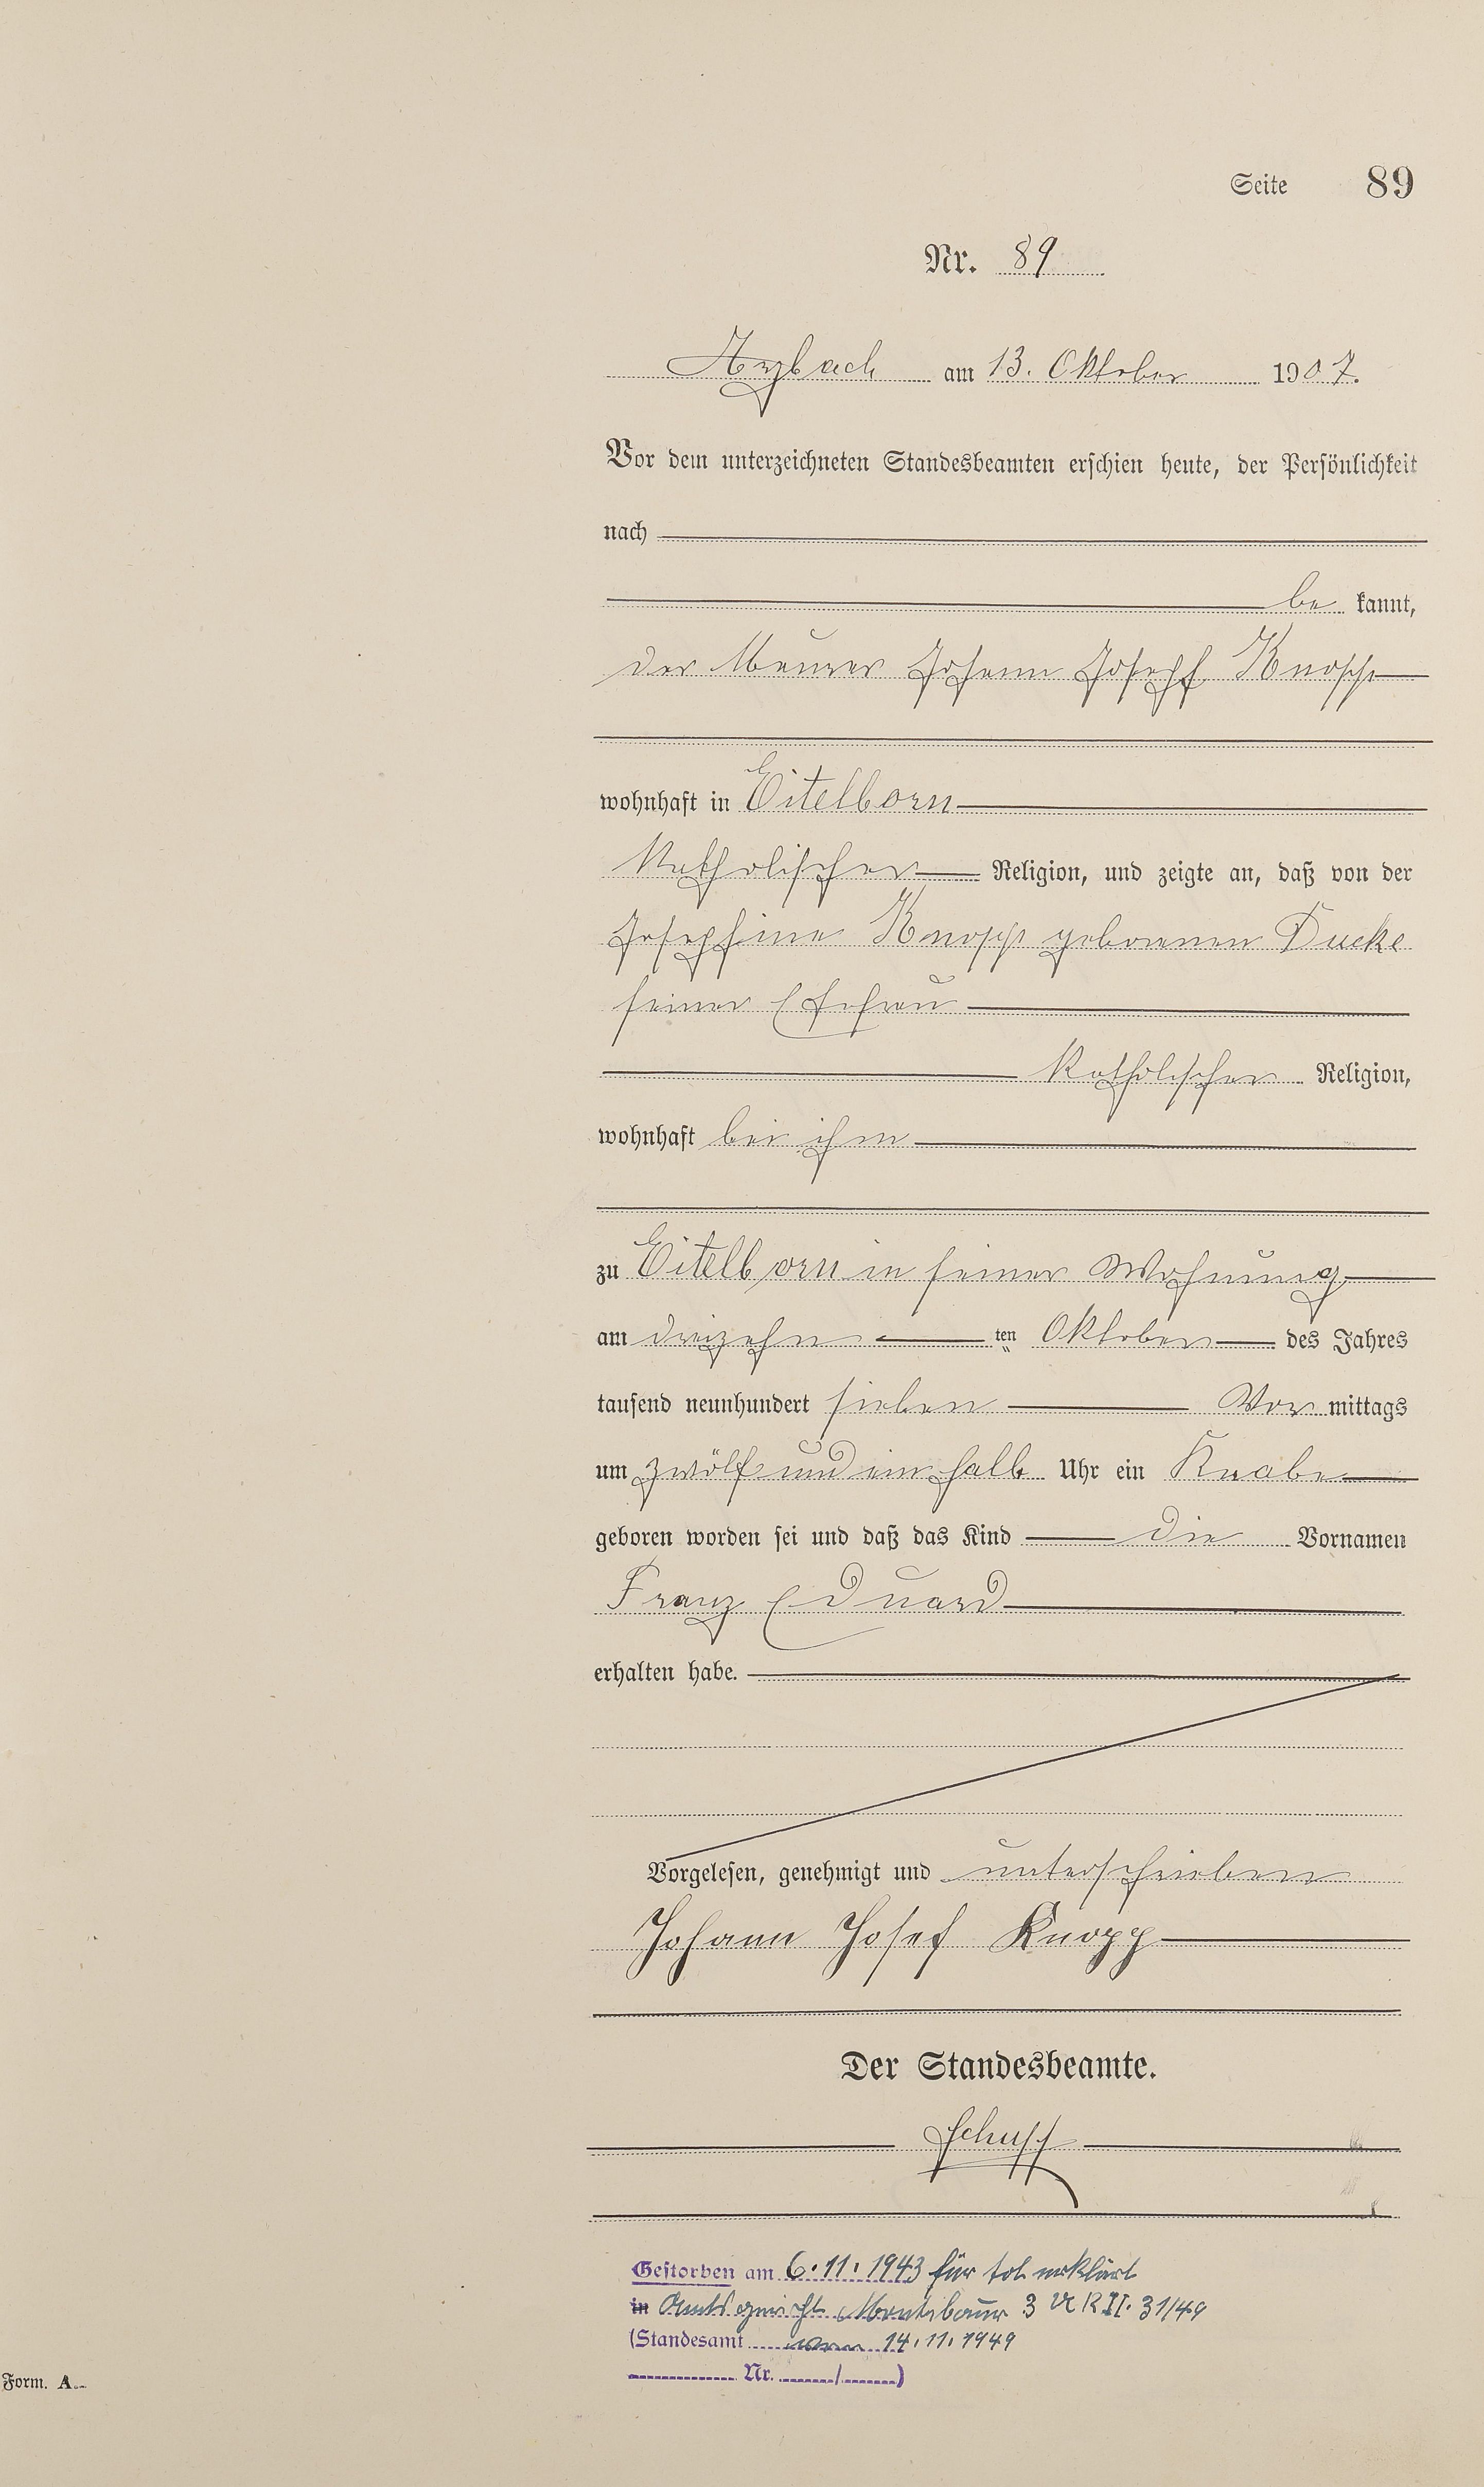 Seite 89
Nr. 89
Arzbach am 13. Oktober 1907.
Vor dem unterzeichneten Standesbeamten erschien heute, der Persönlichkeit
nach
be kannt,
der Maurer Johann Joseph Knopp
wohnhaft in Eitelborn
Katholischer Religion, und zeigte an, daß von der
Josephine Knopp geborenen Ducke
seiner Ehefrau
Katholischer Religion,
wohnhaft bei ihm
zu Eitelborn in seiner Wohnung
am dreizehn ten Oktober des Jahres
tausend neunhundert sieben Vor mittags
um zwölf und ein halb Uhr ein Knabe
geboren worden sei und daß das Kind die Vornamen
Franz Eduard
erhalten habe.
Vorgelesen, genehmigt und unterschrieben
Johann Josef Knopp
Der Standesbeamte.
Gestorben am 6.11.1943 für tot erklärt
in Amtsgericht Montabaur 3 UR II. 31/49
(Standesamt vom 14.11.1949
Nr. / )
Form. A.